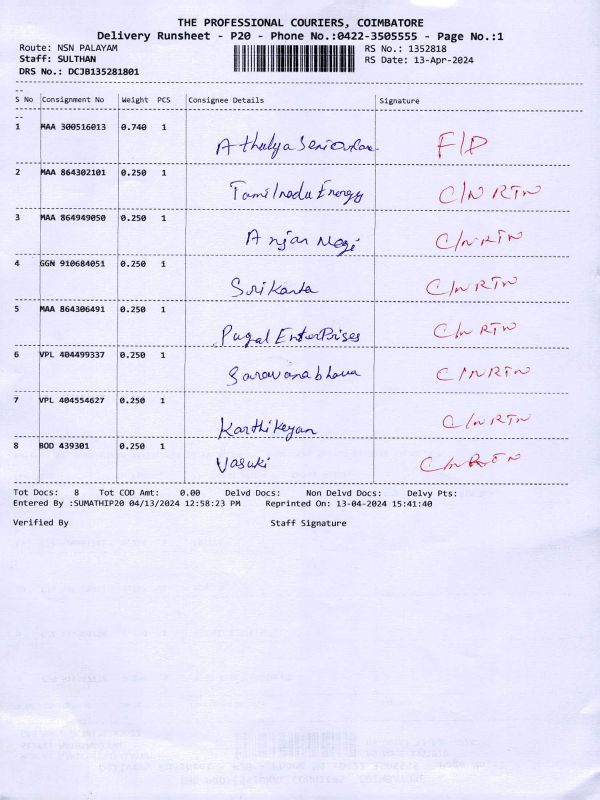 THE PROFESSIONAL COURIERS, COIMBATORE
Delivery Runsheet - P20 - Phone No.:0422-3505555 - Page No.:1
Route: NSN PALAYAM RS No.: 1352818
Staff: SULTHAN RS Date: 13-Apr-2024
DRS No.: DCJB135281801
S No Consignment No Weight PCS Consignee Details Signature
1 MAA 300516013 0.740 1 Athulya F/D
2 MAA 864302101 0.250 1 Tamilnadu Energy C/N RTN
3 MAA 864949050 0.250 1 Anjan Negi C/N RTN
4 GGN 910684051 0.250 1 Srikanta C/N RTN
5 MAA 864306491 0.250 1 Pugal EnterPrises C/N RTN
6 VPL 404499337 0.250 1 Saravanabhava C/N RTN
7 VPL 404554627 0.250 1 Karthikeyan C/N RTN
8 BOD 439301 0.250 1 Vasuki C/N RTN
Tot Docs: 8 Tot COD Amt: 0.00 Delvd Docs: Non Delvd Docs: Delvy Pts:
Entered By :SUMATHIP20 04/13/2024 12:58:23 PM Reprinted On: 13-04-2024 15:41:40
Verified By Staff Signature